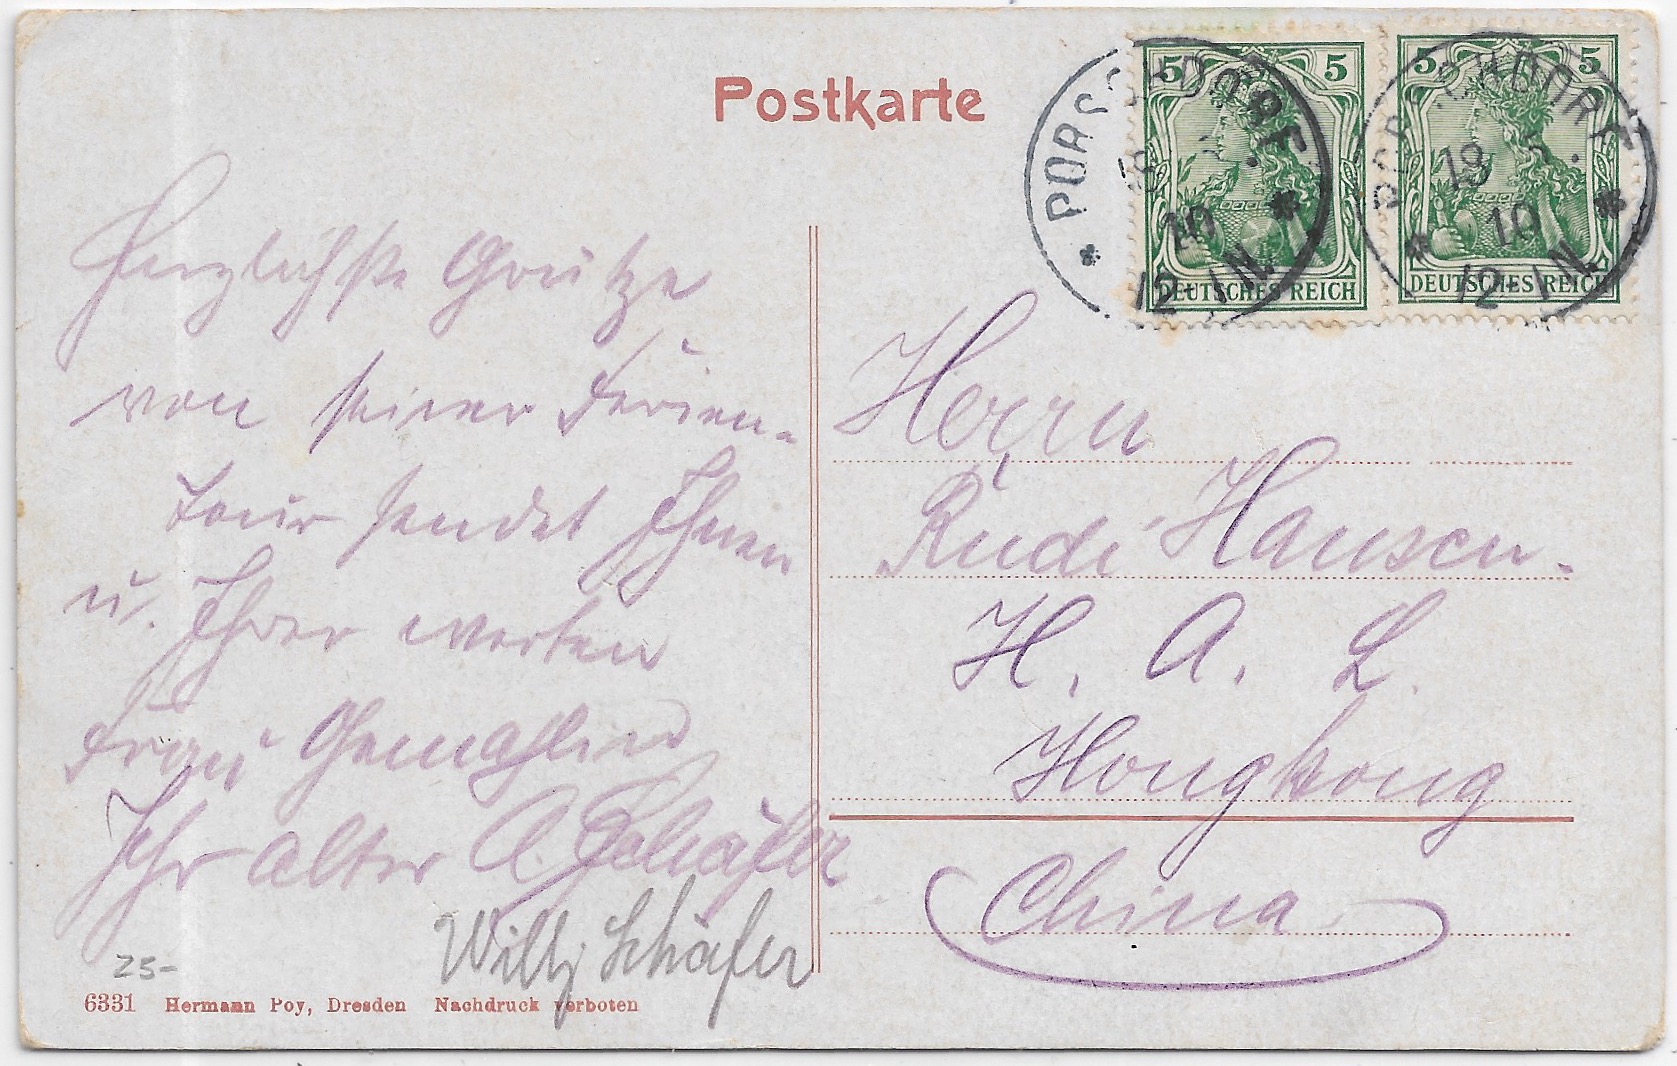 Postkarte
5 5
5 5
DEUTSCHES REICH
DEUTSCHES REICH
PORSCHDORF
10
12-1N.
PORSCHDORF
19 5.
10
12-1N.
Herzlichste Grütze
von seiner Ferien-
tour sendet Ihnen
u. Ihrer werten
Frau Gemahlin
Ihr alter A. Schäfer
Willy Schäfer
Herrn
Rudi Hansen.
H. A. L.
Hongkong
China
25-
6331 Hermann Poy, Dresden Nachdruck verboten